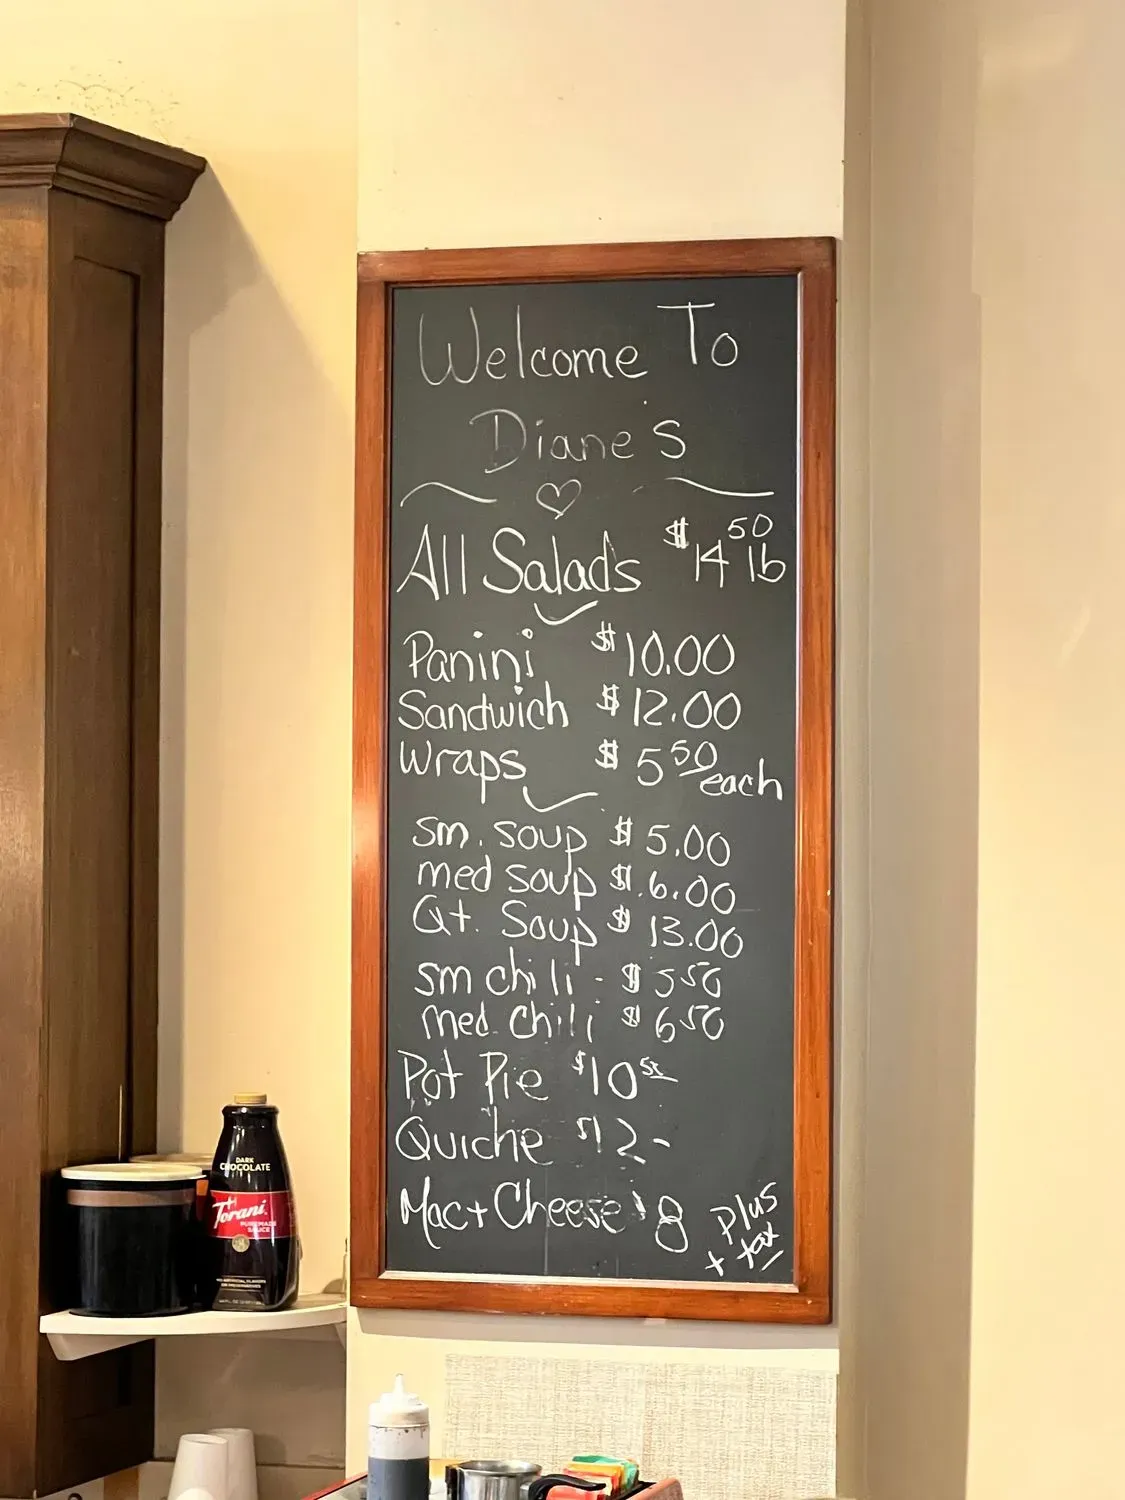 Welcome To
Diane's
All Salads $14 50 lb
Panini $10.00
Sandwich $12.00
Wraps $5 50 each
sm. soup $5.00
med soup $6.00
Qt. Soup $13.00
sm chili - $5 50
med. chili $6 50
Pot Pie $10 50
Quiche $12-
Mac + Cheese $8
+ plus
tax
DARK
CHOCOLATE
Torani
PUREMADE
SAUCE
NO ARTIFICIAL FLAVORS
OR PRESERVATIVES